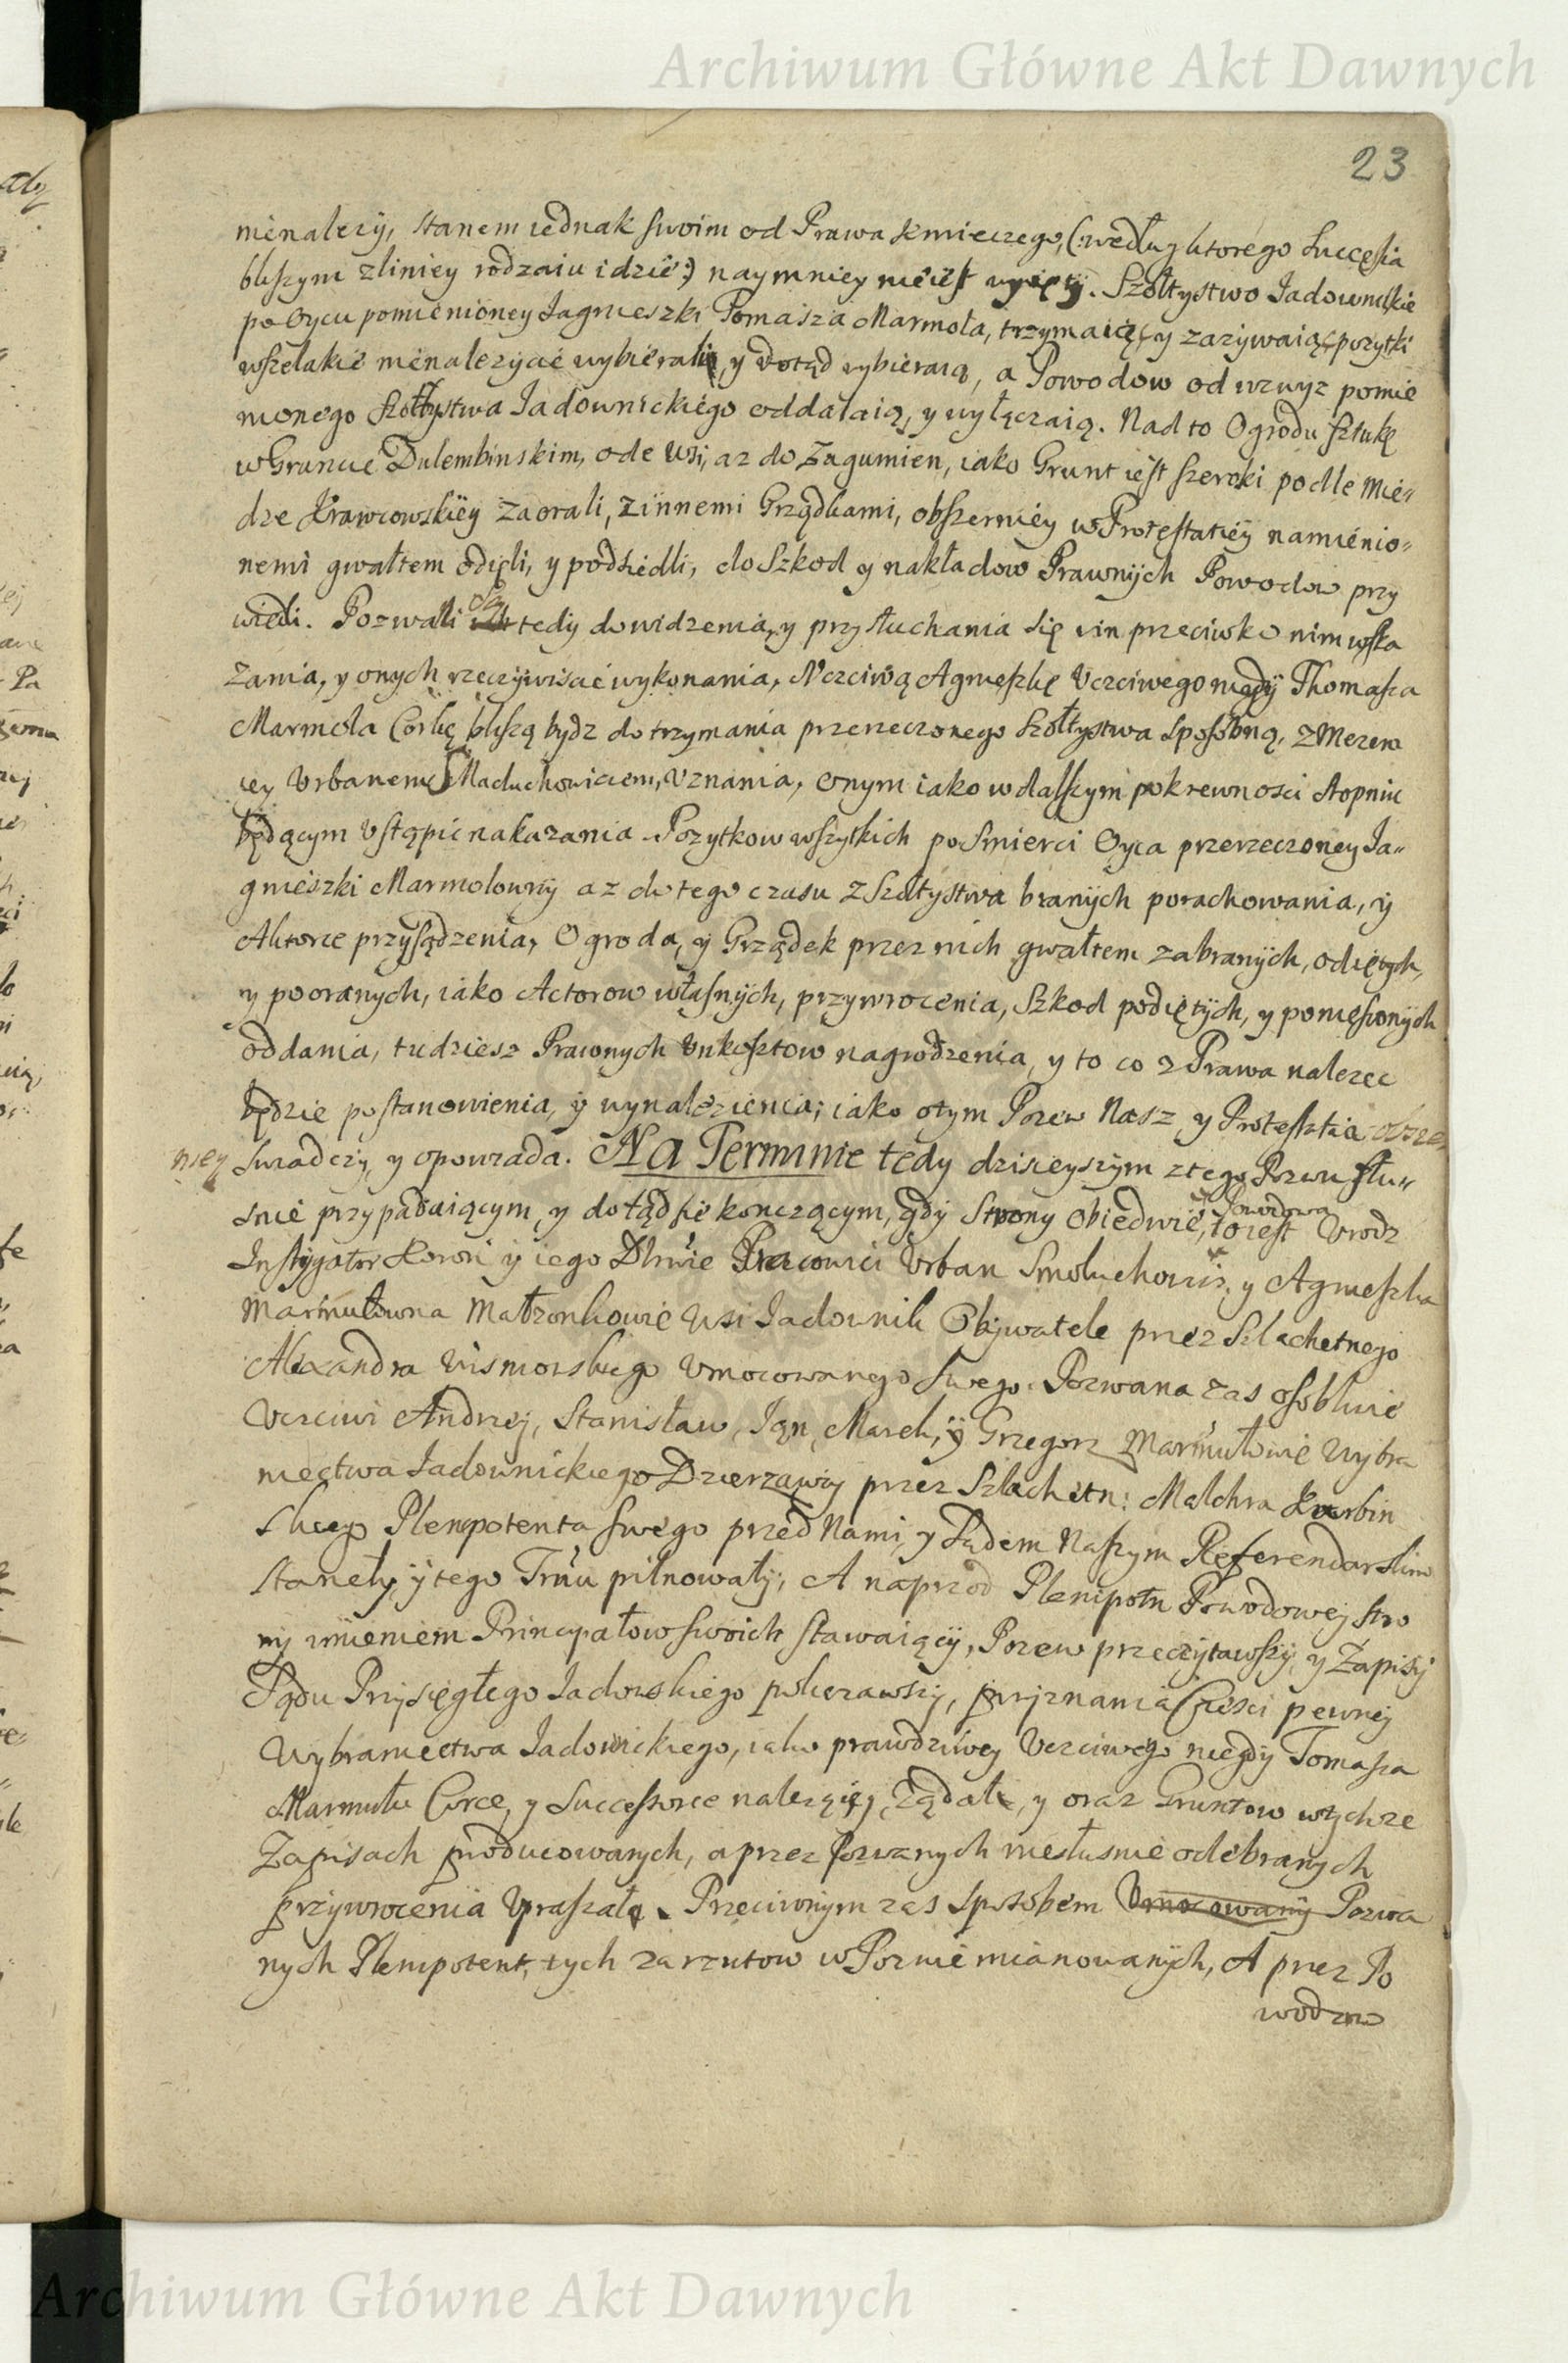 Archiwum Główne Akt Dawnych
23
nienalezy, stanem iednak swoim od Prawa kmieczego, (:według ktorego Succesia
bliszym z liniey rodzaiu idzie:) naymniey nieiest wyięty. Szołtystwo Iadownickie
po Oycu pomienioney Iagnieszki Tomasza Marmoła, trzymaiąc, y zazywaiąc pozytki
wszelakie nienalezycie wybierali, y dotąd wybieraią, a Powodow od wzwyz pomie
nionego Szołtystwa Iadownickiego oddalaią, y wyłączaią. Nad to Ogrodu sztukę
w Gruncie Dulembinskim, ode Wsi, az do Zagumien, iako Grunt iest szeroki podle Mie-
dze Krawcowskiey zaorali, z innemi Grządkami, obszerniey w Protestatiey namienio-
nemi gwałtem odięli, y podsiedli, do Szkod y nakładow Prawnych Powodow przy
wiedli. Pozwali są tedy do widzenia, y przysłuchania się vin przeciwko nim wska
zania, y onych rzeczywiscie wykonania, Vczciwą Agnieszkę Vczciwego niegdy Thomasza
Marmoła Corkę bliszą bydz do trzymania przerzeczonego Szołtystwa sposobną, z Mezem
iey Vrbanem Smaduchowiciem, Vznania, onym iako w dalszym pokrewnosci stopniu
będącym Vstąpic nakazania. Pozytkow wszytkich po Smierci Oyca przerzeczoney Ia-
gnieszki Marmolowny az do tego czasu z Szołtystwa branych porachowania, y
Aktorce przysądzenia, Ogroda, y Grządek przez nich gwałtem zabranych, odiętych,
y pooranych, iako Actorow własnych, przywrocenia, Szkod podiętych, y poniesionych
oddania, tudziesz Prawnych Vnkosztow nagrodzenia, y to co z Prawa nalezec
będzie postanowienia, y wynalezienia; iako o tym Pozew Nasz y Protestatia obszer
niey swiadczy, y opowiada. Na Terminie tedy dzisieyszym z tego Pozwu słu-
snie przypadaiącym, y dotąd sie konczącym, gdy Strony obiedwie, Powodowa to iest Vrodz
Instygator Koron y iego Dlnie Pracowici Vrban Smoluchowic, y Agnieszka
Marmułowna Małzonkowie Wsi Iadownik Obywatele przez Szlachetnego
Alexandra Wisniowskiego Vmocowanego swego. Pozwana zas osobliwie
Vczciwi Andrzej, Stanisław, Ian, Marek, y Grzegorz Marmułowie Wybra
niectwa Iadownickiego Dzierzawcy przez Szlachetn: Malchra Kurbin
skiego Plenipotenta swego przed Nami, y Sądem Naszym Referendarskim
stanęły, y tego Trnu pilnowały; A naprzod Plenipotn Powodowej stro
ny imieniem Principałow swoich stawaiący, Pozew przeczytawszy, y Zapisy
Sądu Przysięgłego Iadowskiego pokazawszy, przyznania Częsci pewnej
Wybraniectwa Iadownickiego, iako prawdziwey Vczciwego niegdy Tomasza
Marmuła Corce, y Successorce nalezącej, ządał, y oraz Gruntow wtychze
Zapisach producowanych, a przez Pozwanych niesłusnie odebranych
przywrocenia Vpraszał. Przeciwnym zas sposobem Vmocowany Pozwa
nych Plenipotent, tych zarzutow w Pozwie mianowanych, A przez Po
wodow
Archiwum Główne Akt Dawnych